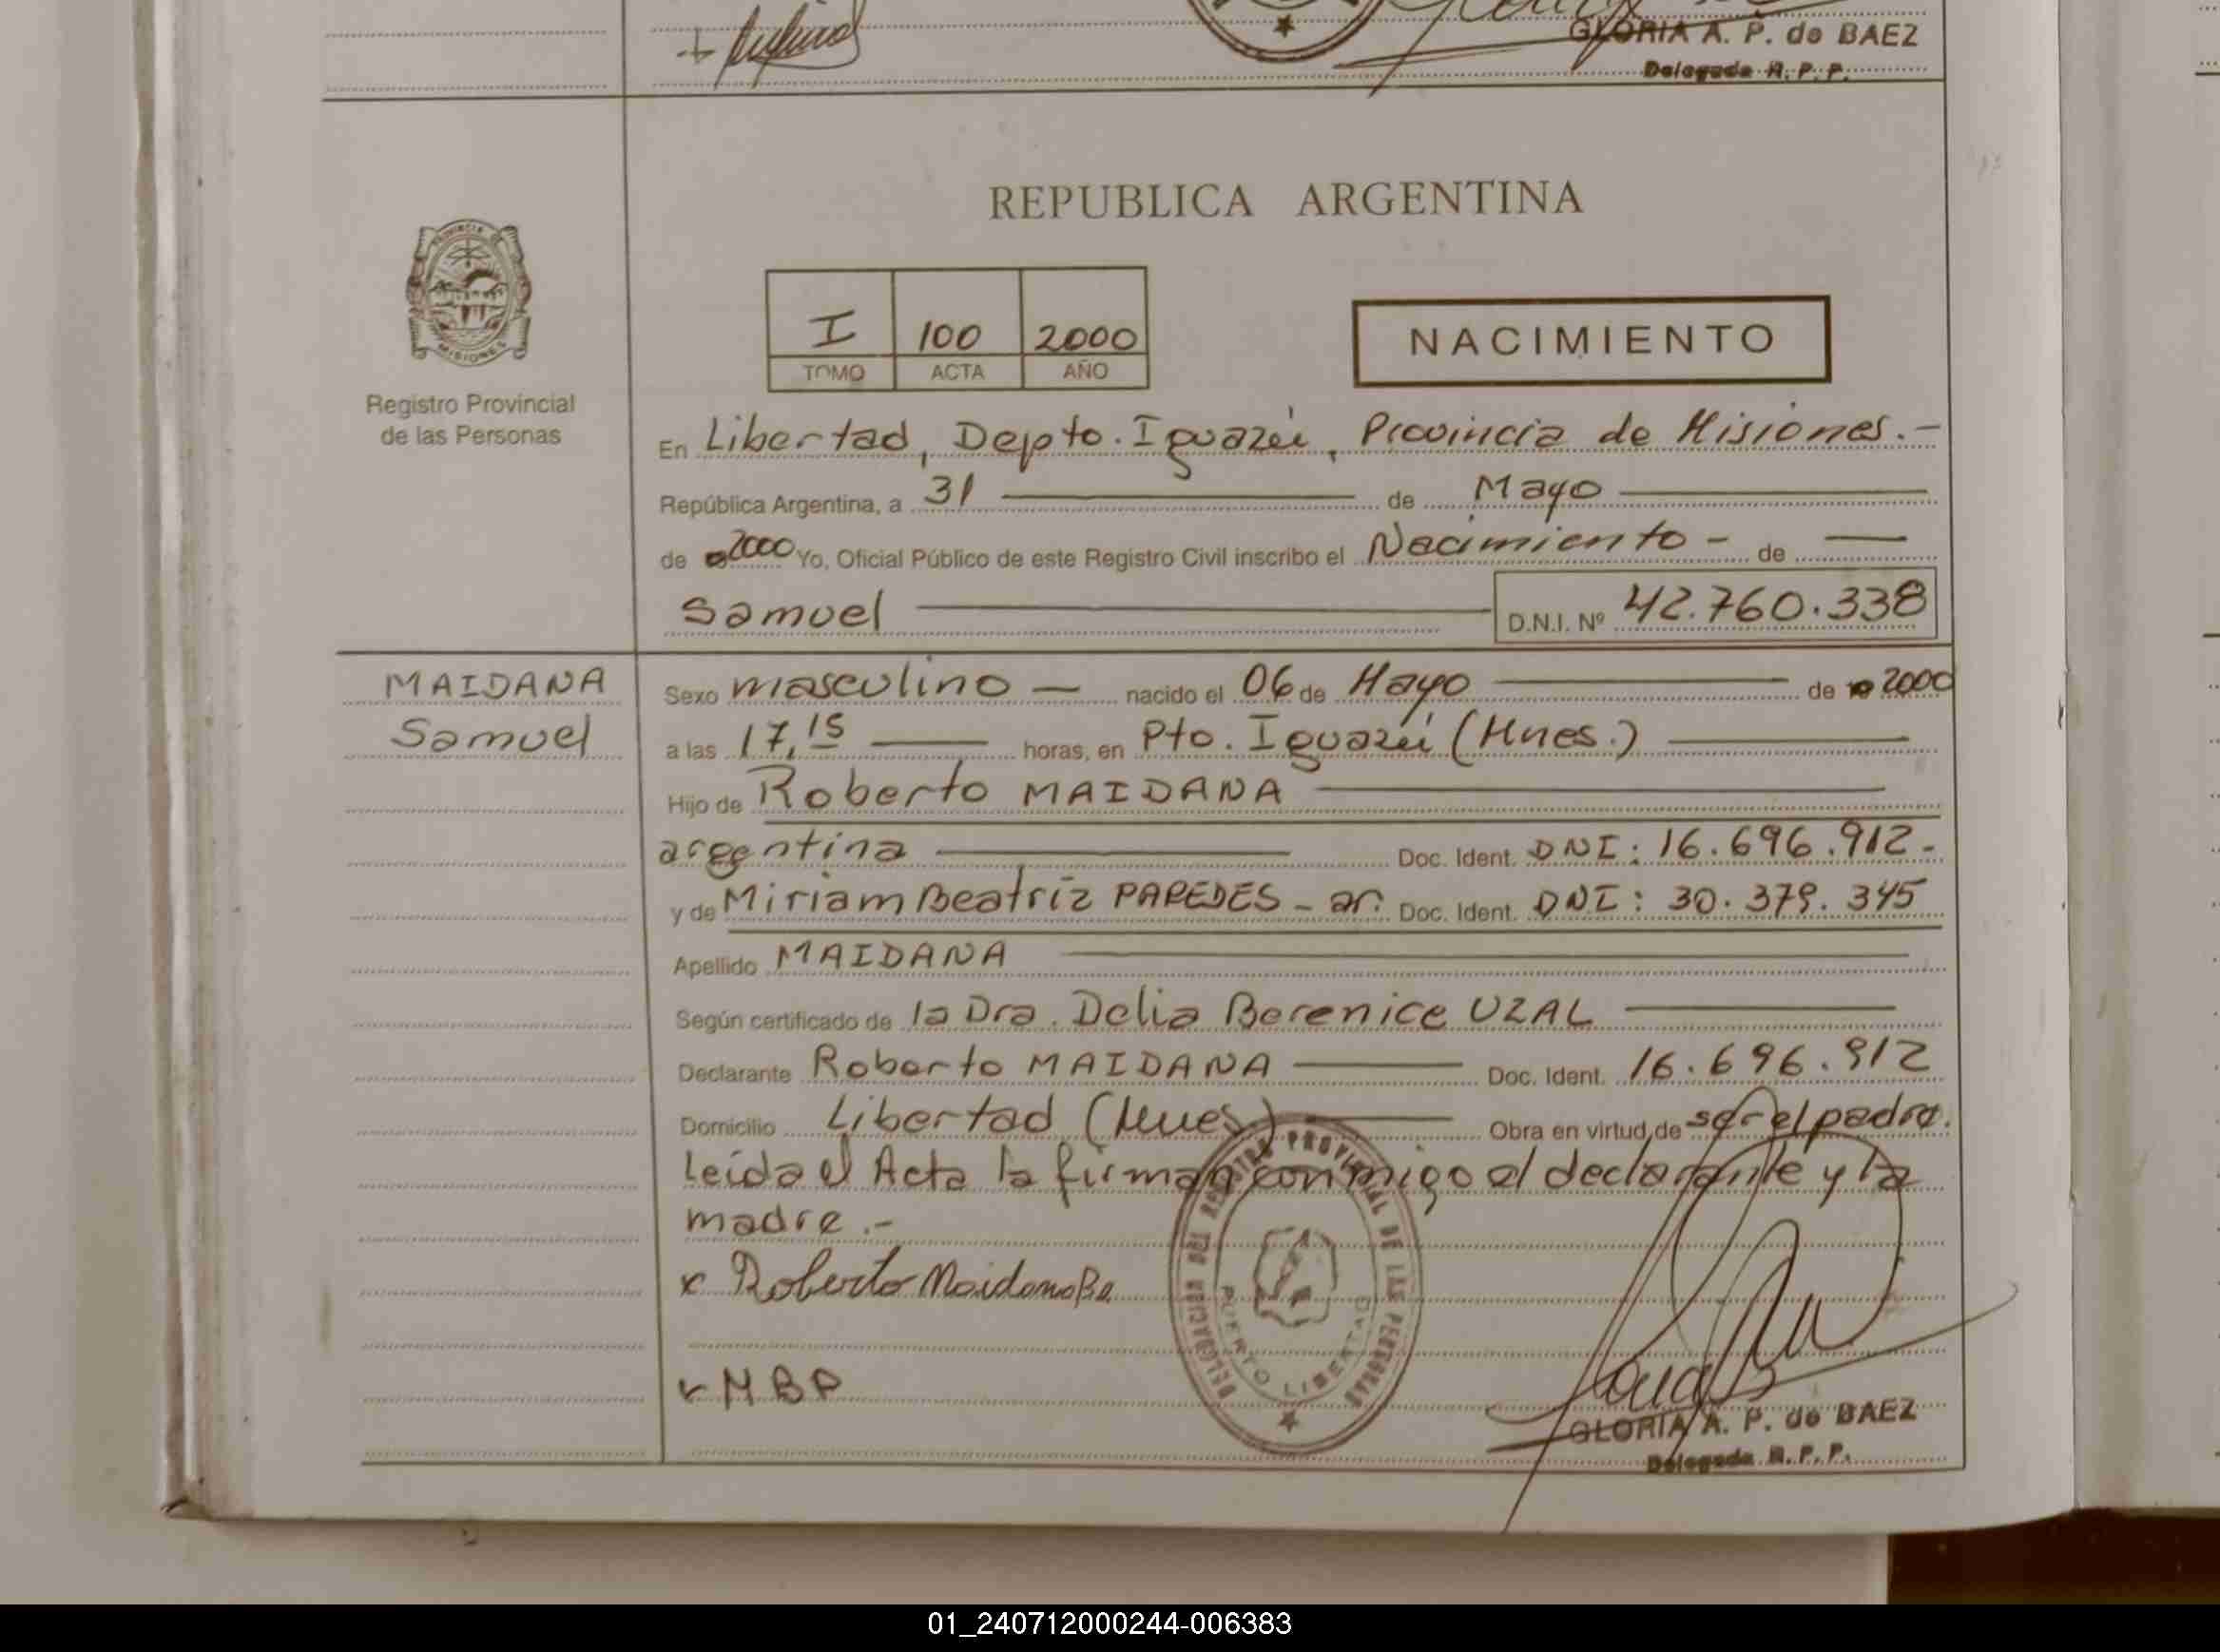 GLORIA A. P. de BAEZ
Delegada R. P. P.
REPUBLICA ARGENTINA
PROVINCIA DE
MISIONES
Registro Provincial
de las Personas
I 100 2000
TOMO ACTA AÑO
NACIMIENTO
En Libertad, Depto. Iguazú, Provincia de Misiones.-
República Argentina, a 31 de Mayo
de 2000 Yo, Oficial Público de este Registro Civil inscribo el Nacimiento - de
Samuel D.N.I. Nº 42.760.338
MAIDANA
Samuel
Sexo masculino nacido el 06 de Mayo de 2000
a las 17,15 horas, en Pto. Iguazú (Mnes.)
Hijo de Roberto MAIDANA
argentina Doc. Ident. DNI: 16.696.912-
y de Miriam Beatriz PAREDES - ar. Doc. Ident. DNI: 30.379.345
Apellido MAIDANA
Según certificado de la Dra. Delia Berenice UZAL
Declarante Roberto MAIDANA Doc. Ident. 16.696.912
Domicilio Libertad (Mnes) Obra en virtud de ser el padre.
Leída el Acta la firman conmigo el declarante y la
madre.-
x Roberto Maidana
MBP
DELEGACION DEL REGISTRO PROVINCIAL DE LAS PERSONAS
PUERTO LIBERTAD
GLORIA A. P. de BAEZ
Delegada R. P. P.
01_240712000244-006383